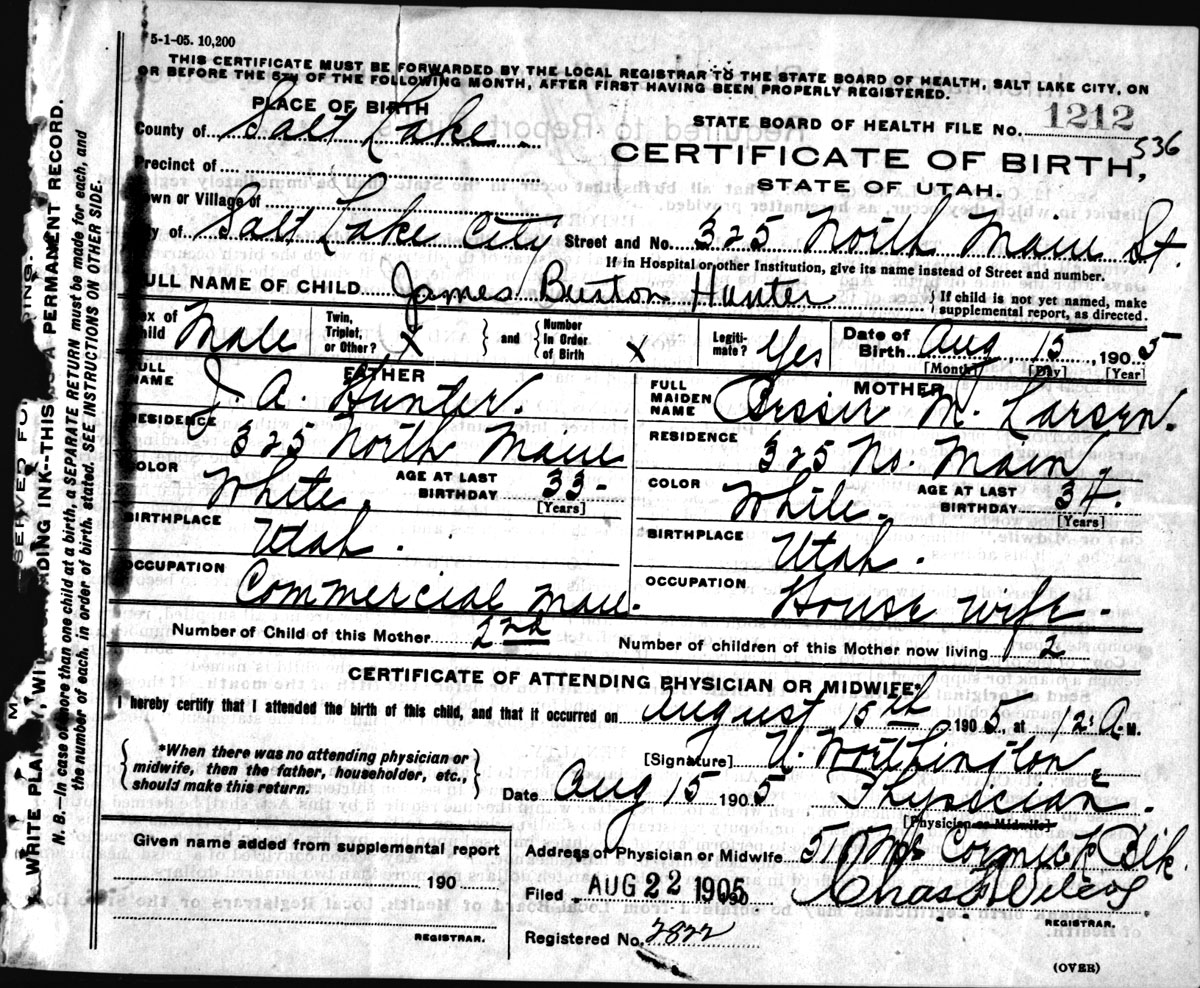 5-1-05. 10,200
THIS CERTIFICATE MUST BE FORWARDED BY THE LOCAL REGISTRAR TO THE STATE BOARD OF HEALTH, SALT LAKE CITY, ON
OR BEFORE THE 5TH OF THE FOLLOWING MONTH, AFTER FIRST HAVING BEEN PROPERLY REGISTERED.
PLACE OF BIRTH
County of Salt Lake.
STATE BOARD OF HEALTH FILE No. 1212
536
CERTIFICATE OF BIRTH,
STATE OF UTAH.
Precinct of
Town or Village of
City of Salt Lake City Street and No. 325 North Main St.
If in Hospital or other Institution, give its name instead of Street and number.
FULL NAME OF CHILD James Buxton Hunter { If child is not yet named, make supplemental report, as directed.
Sex of Child Male Twin, Triplet, or Other? X } and { Number in Order of Birth X Legiti-mate? Yes Date of Birth Aug 15, 1905
[Month] [Day] [Year]
FATHER
FULL NAME J. A. Hunter.
RESIDENCE 325 North Main
COLOR White. AGE AT LAST BIRTHDAY 33-
[Years]
BIRTHPLACE Utah.
OCCUPATION Commercial man.
MOTHER
FULL MAIDEN NAME Bessie M. Larsen.
RESIDENCE 325 No. Main.
COLOR White. AGE AT LAST BIRTHDAY 34.
[Years]
BIRTHPLACE Utah.
OCCUPATION House wife.
Number of Child of this Mother 2nd Number of children of this Mother now living 2
CERTIFICATE OF ATTENDING PHYSICIAN OR MIDWIFE*
I hereby certify that I attended the birth of this child, and that it occurred on August 15th, 1905, at 12: A. M.
{ *When there was no attending physician or midwife, then the father, householder, etc., should make this return. }
[Signature] U. Worthington,
Date Aug 15 1905 Physician.
[Physician or Midwife]
Given name added from supplemental report
190
REGISTRAR.
Address of Physician or Midwife 510 McCormick Blk.
Filed AUG 22 1905
REGISTRAR.
Registered No. 2822
(OVER)
WRITE PLAINLY, WITH UNFADING INK--THIS IS A PERMANENT RECORD.
N. B.--In case of more than one child at a birth, a SEPARATE RETURN must be made for each, and
the number of each, in order of birth, stated. SEE INSTRUCTIONS ON OTHER SIDE.